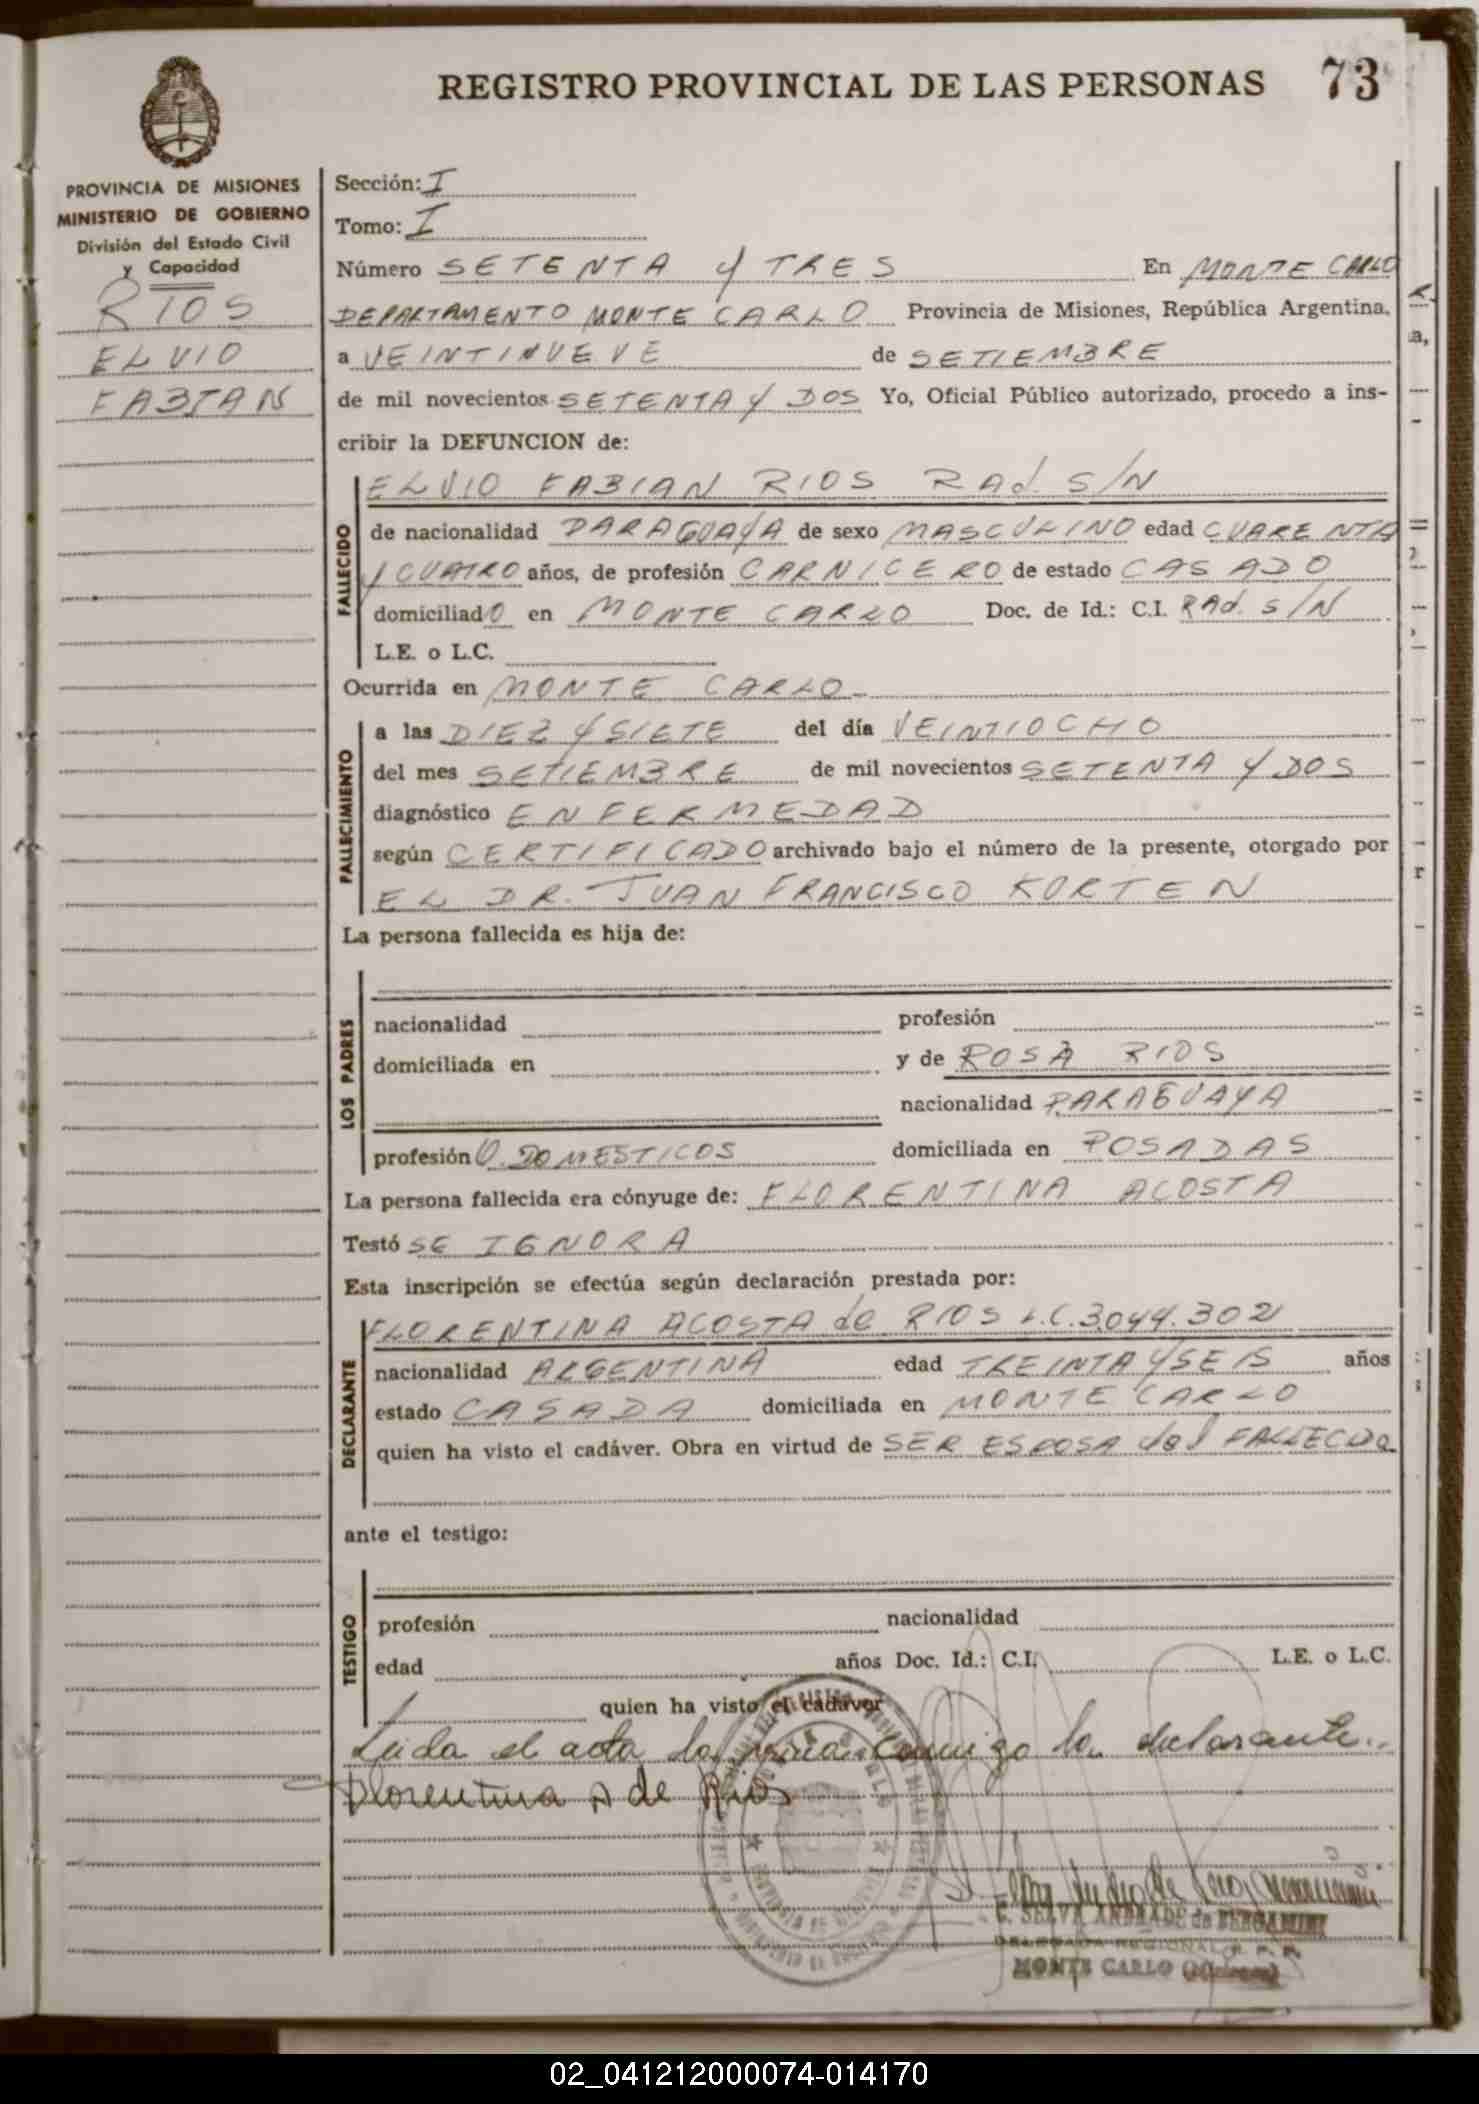 REGISTRO PROVINCIAL DE LAS PERSONAS 73
PROVINCIA DE MISIONES
MINISTERIO DE GOBIERNO
División del Estado Civil
y Capacidad
RIOS
ELVIO
FABIAN
Sección: I
Tomo: I
Número SETENTA Y TRES En MONTE CARLO
DEPARTAMENTO MONTE CARLO Provincia de Misiones, República Argentina,
a VEINTINUEVE de SETIEMBRE
de mil novecientos SETENTA Y DOS Yo, Oficial Público autorizado, procedo a ins-
cribir la DEFUNCION de:
FALLECIDO
ELVIO FABIAN RIOS RAd. S/N
de nacionalidad PARAGUAYA de sexo MASCULINO edad CUARENTA
Y CUATRO años, de profesión CARNICERO de estado CASADO
domiciliadO en MONTE CARLO Doc. de Id.: C.I. RAd. S/N
L.E. o L.C.
Ocurrida en MONTE CARLO
FALLECIMIENTO
a las DIEZ Y SIETE del día VEINTIOCHO
del mes SETIEMBRE de mil novecientos SETENTA Y DOS
diagnóstico ENFERMEDAD
según CERTIFICADO archivado bajo el número de la presente, otorgado por
EL DR. JUAN FRANCISCO KORTEN
La persona fallecida es hija de:
LOS PADRES
nacionalidad profesión
domiciliada en y de ROSA RIOS
nacionalidad PARAGUAYA
profesión Q. DOMESTICOS domiciliada en POSADAS
La persona fallecida era cónyuge de: FLORENTINA ACOSTA
Testó SE IGNORA
Esta inscripción se efectúa según declaración prestada por:
DECLARANTE
FLORENTINA ACOSTA de RIOS L.C. 3.044.302
nacionalidad ARGENTINA edad TREINTA Y SEIS años
estado CASADA domiciliada en MONTE CARLO
quien ha visto el cadáver. Obra en virtud de SER ESPOSA del FALLECIDO
ante el testigo:
TESTIGO
profesión nacionalidad
edad años Doc. Id.: C.I. L.E. o L.C.
quien ha visto el cadáver
Leida el acta la firma conmigo la declarante.
Florentina A de Rios
E. SELVA ANDRADE de BERGAMINI
DELEGADA REGIONAL R. P. P.
MONTE CARLO (Misiones)
02_041212000074-014170